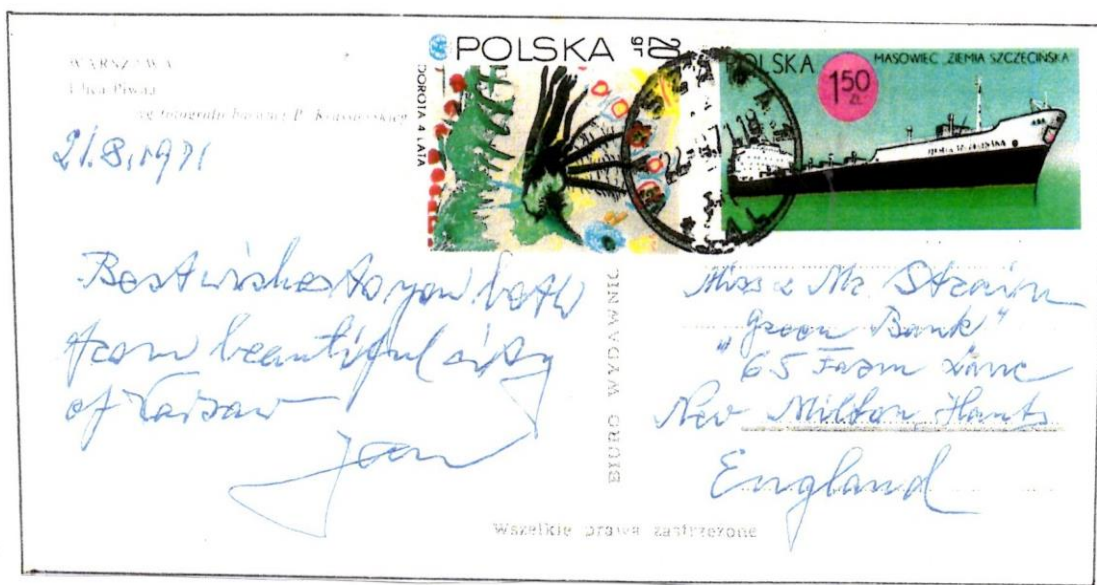 WARSZAWA
Ulica Piwna
wg fotografii barwnej P. Krassowskiego
21.8.1971
POLSKA 20 gr
DOROTA 4 LATA
POLSKA
1.50 ZŁ
MASOWIEC „ZIEMIA SZCZECIŃSKA
ZIEMIA SZCZECIŃSKA
Best wishes to you both
from beautiful city
of Warsaw
Jan
BIURO WYDAWNIC
Miss & Mr.
"Green Bank"
65 Farm Lane
New Milton, Hants
England
Wszelkie prawa zastrzeżone